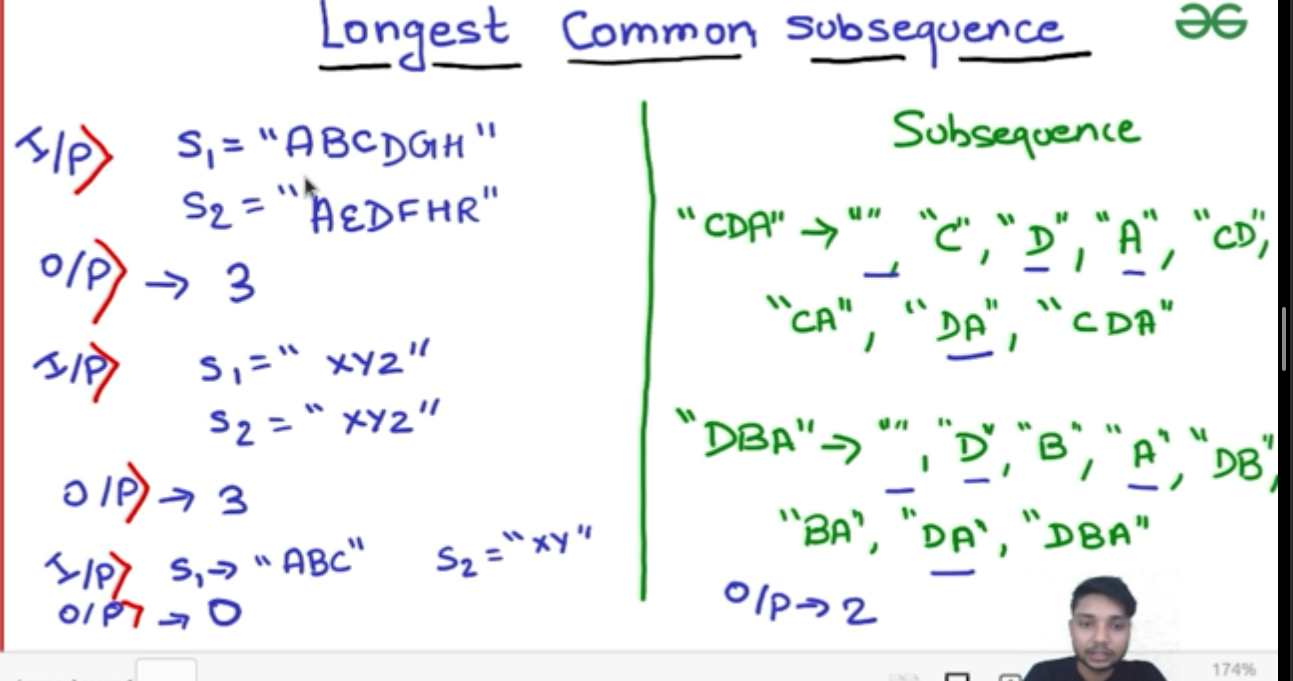 Longest Common Subsequence
I/P> S1 = "ABCDGH"
S2 = "AEDFHR"
O/P> → 3
I/P> S1 = "XYZ"
S2 = "XYZ"
O/P> → 3
I/P> S1 → "ABC" S2 = "XY"
O/P> → 0
Subsequence
"CDA" → "", "C", "D", "A", "CD",
"CA", "DA", "CDA"
"DBA" → "", "D", "B", "A", "DB",
"BA", "DA", "DBA"
O/P → 2
174%